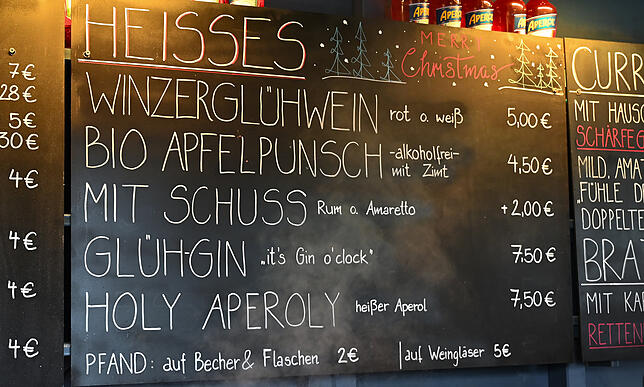 7€
28€
5€
30€
4€
4€
4€
4€
APEROL
HEISSES
MERRY
Christmas
WINZERGLÜHWEIN rot o. weiß 5,00€
BIO APFELPUNSCH -alkoholfrei- mit Zimt 4,50€
MIT SCHUSS Rum o. Amaretto +2,00€
GLÜH-GIN „it's Gin o'clock" 7,50€
HOLY APEROLY heißer Aperol 7,50€
PFAND: auf Becher & Flaschen 2€ | auf Weingläser 5€
CURR
MIT HAUS
SCHÄRFEG
MILD, AMA
„FÜHLE D
DOPPELTE
BRA
MIT KA
RETTEN